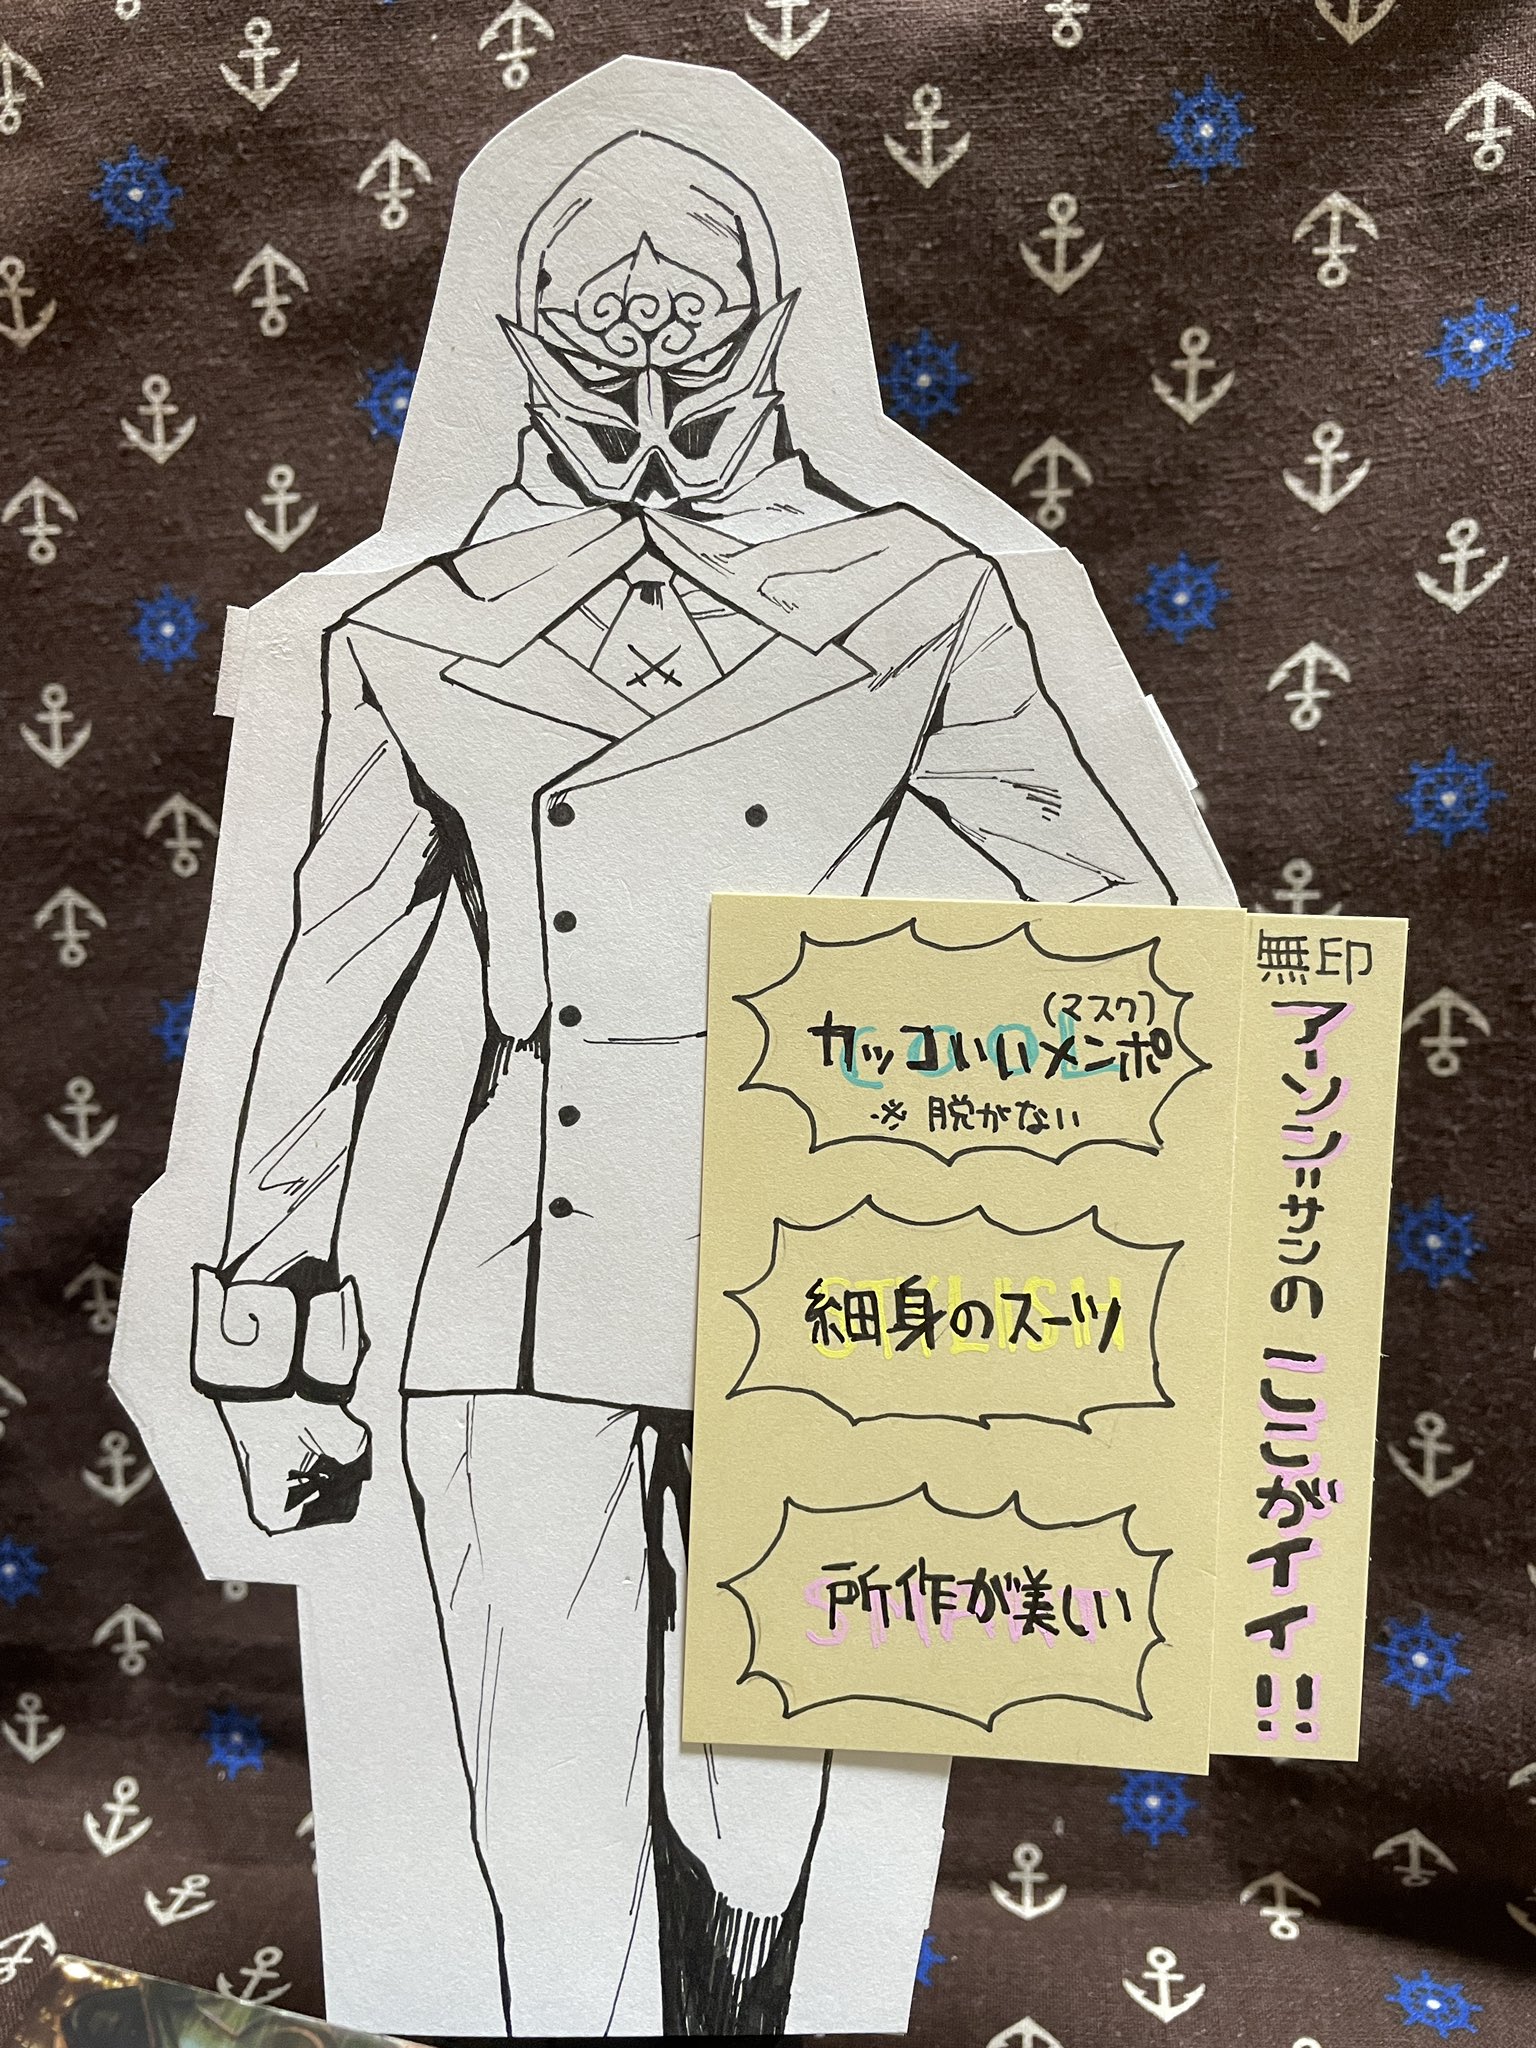 無印
アーソン=サンの ここがイイ!!
(マスク)
カッコいいメンポ
COOL
※ 脱がない
細身のスーツ
STYLISH
所作が美しい
SMART